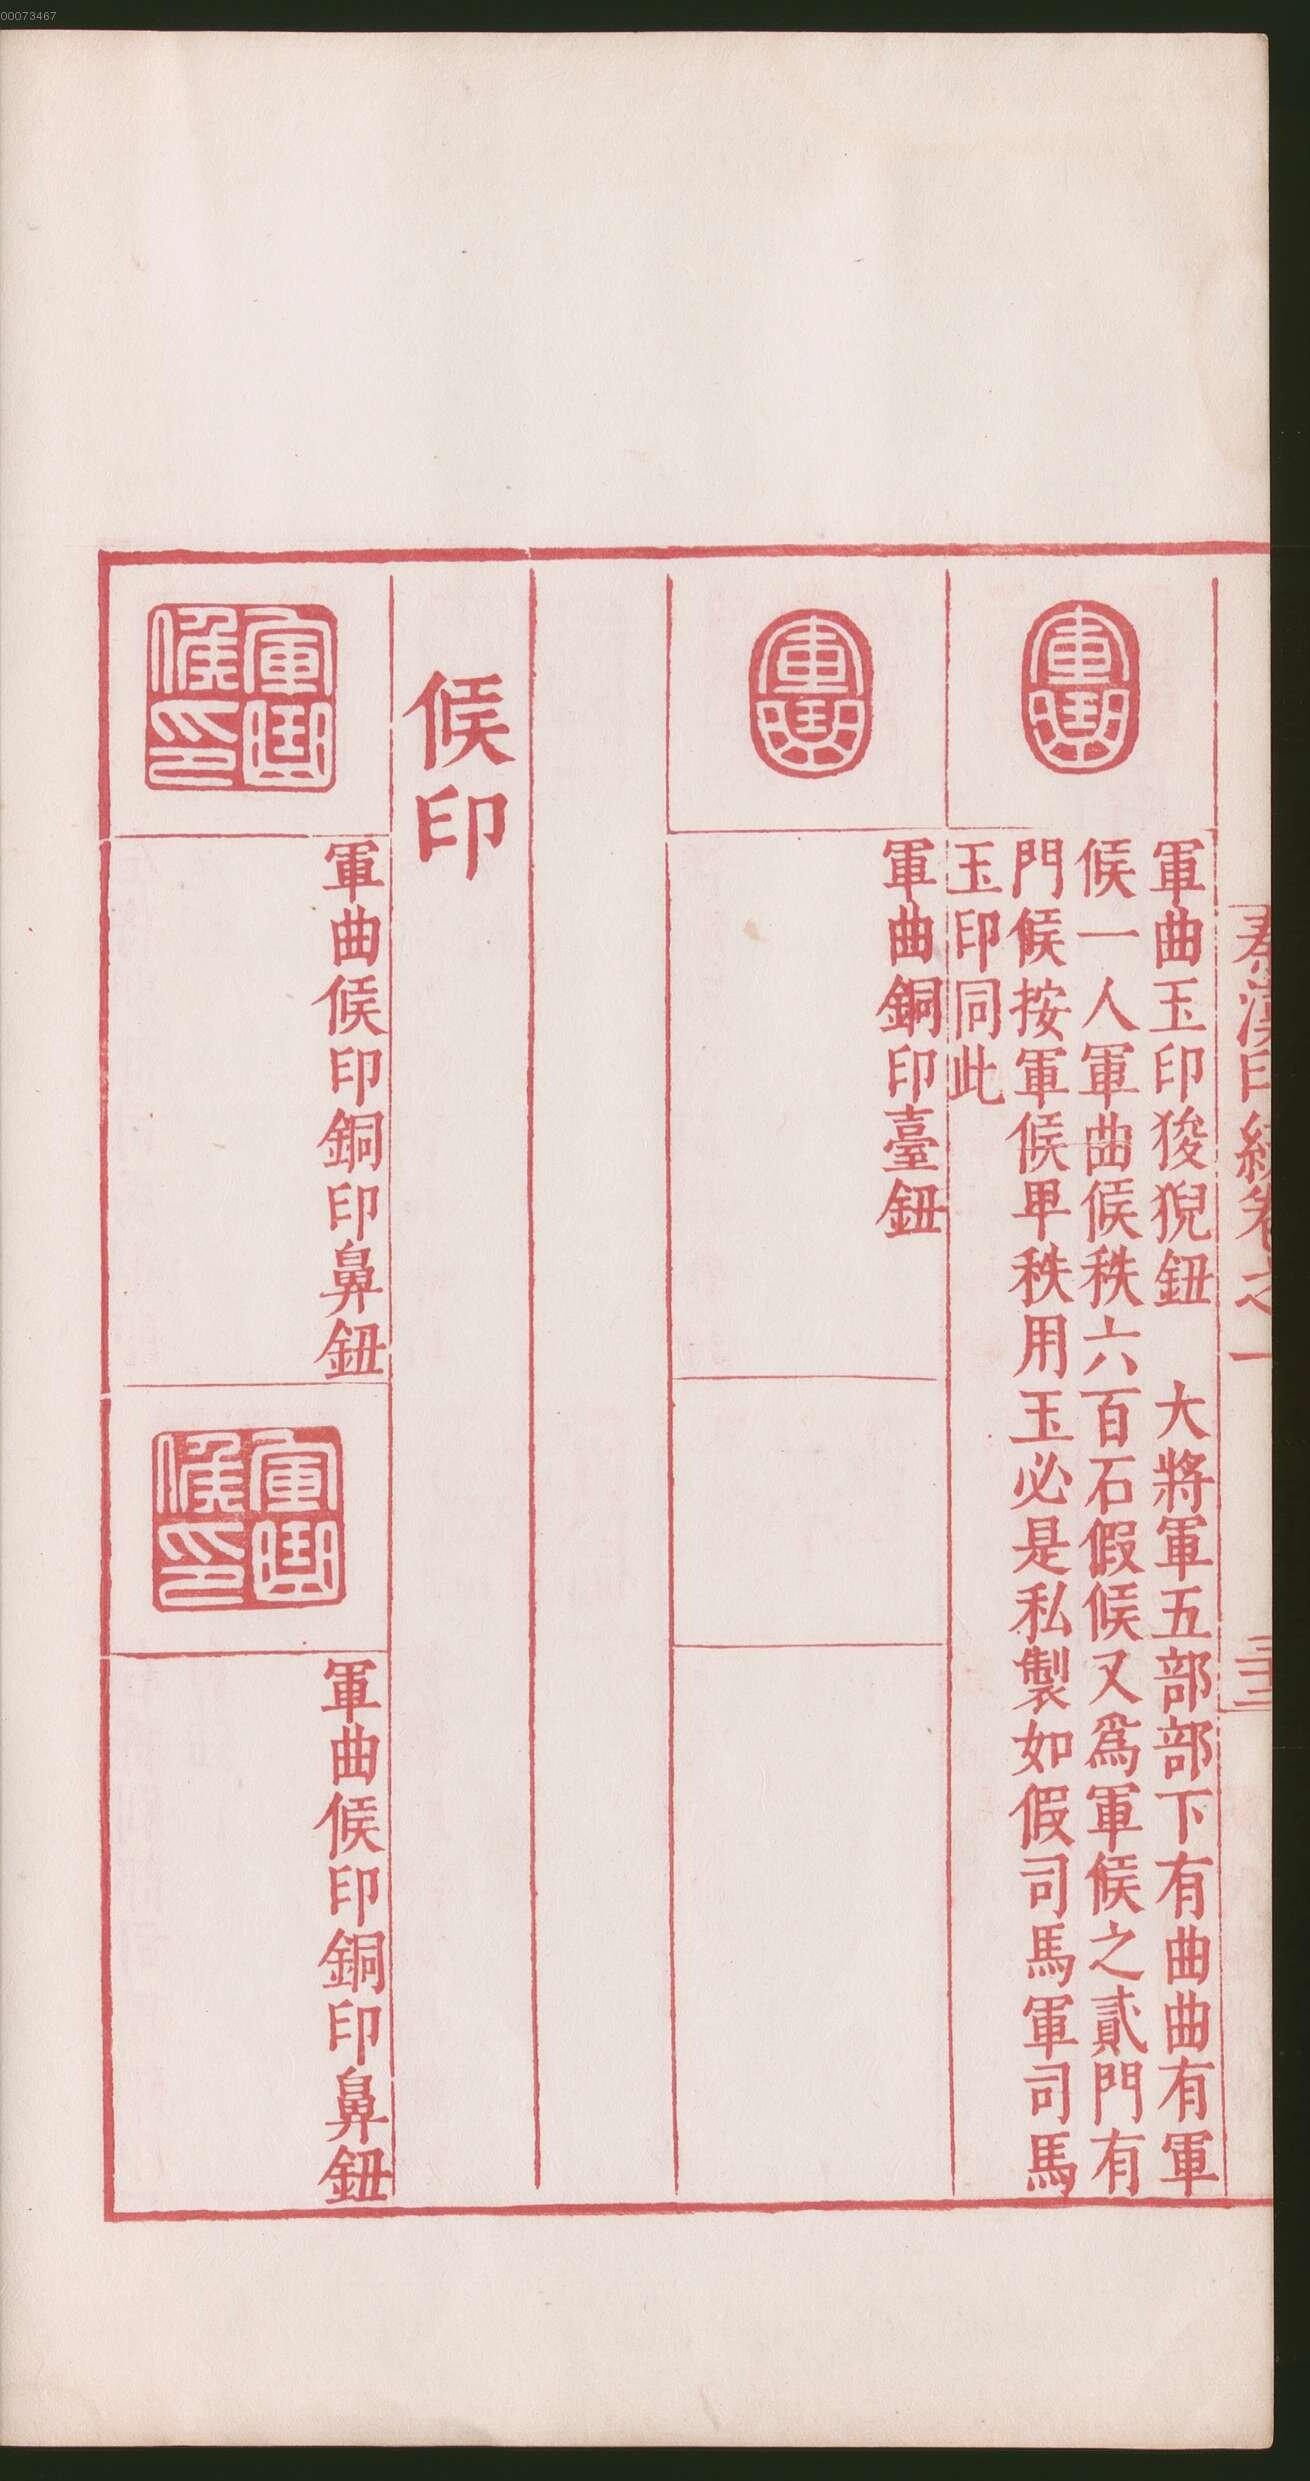 00073467
秦漢印統卷之一
三十二
軍曲
軍曲玉印狻猊鈕　大將軍五部部下有曲曲有軍
候一人軍曲候秩六百石假候又爲軍候之貳門有
門候按軍候卑秩用玉必是私製如假司馬軍司馬
玉印同此
軍曲
軍曲銅印臺鈕
候印
軍曲候印
軍曲候印銅印鼻鈕
軍曲候印
軍曲候印銅印鼻鈕